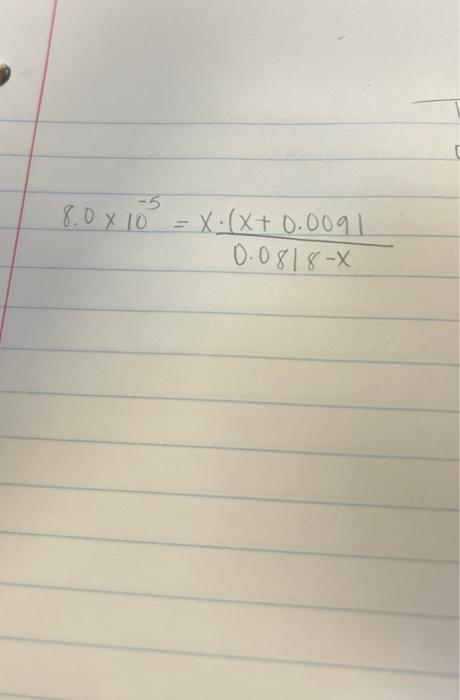 8.0 x 10^-5 = x·(x+ 0.0091
0.0818-x